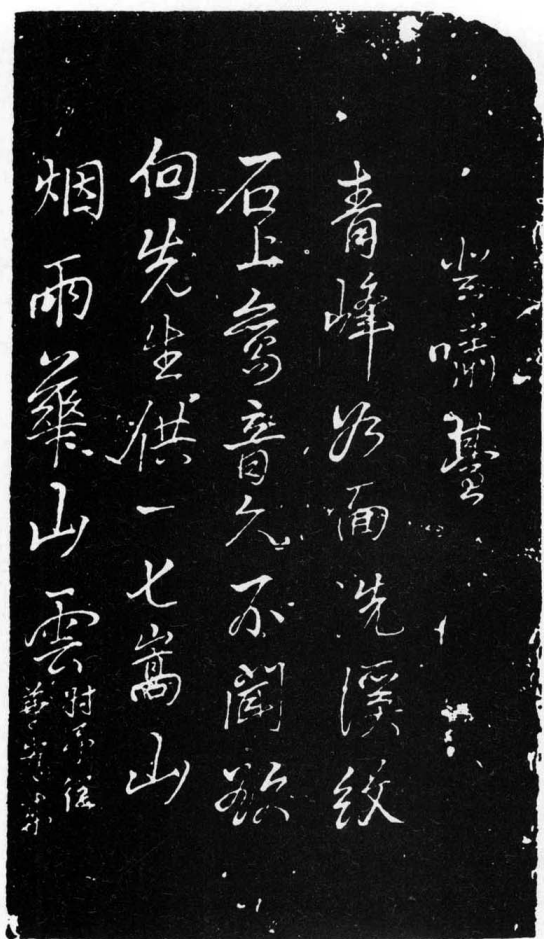 嘯臺
青峰如面洗溪紋
石上鸞音久不聞欲
向先生供一七嵩山
烟雨華山雲